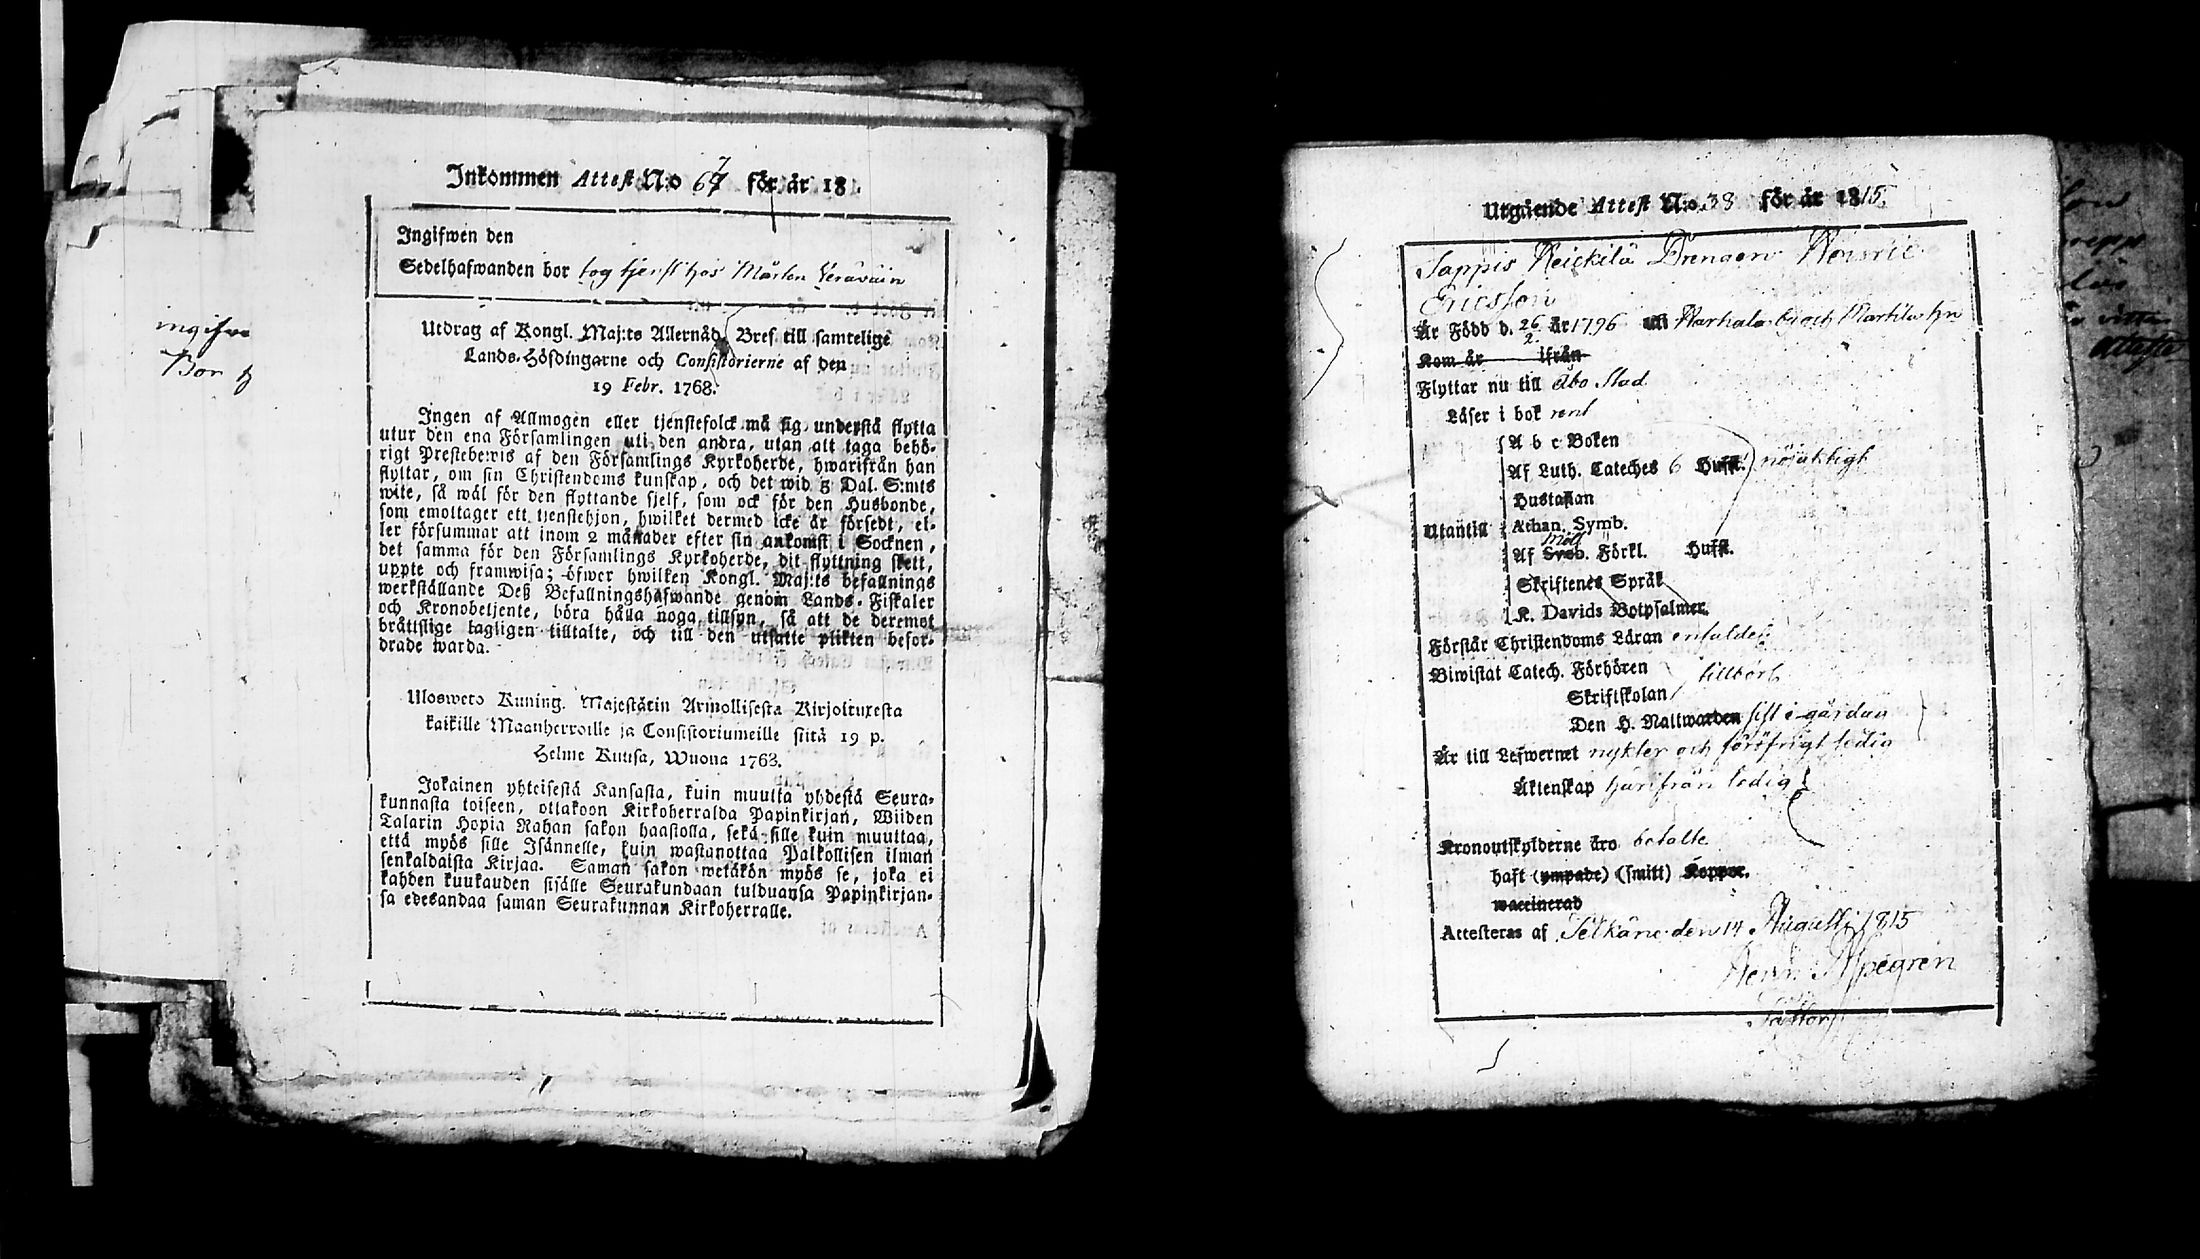 Inkommen Attest N:o 67 för år 18
7
Ingifwen den
Sedelhafwanden bor tog tjenst hos Mårten
Utdrag af Kongl. Maj:ts Allernåd. Bref till samtelige
Lands-Höfdingarne och Consistorierne af den
19 Febr. 1768.
Ingen af Allmogen eller tjenstefolck må sig understå flytta
utur den ena Församlingen uti den andra, utan att taga behö-
rigt Prestebewis af den Församlings Kyrkoherde, hwarifrån han
flyttar, om sin Christendoms kunskap, och det wid 5 Dal. S:mts
wite, så wäl för den flyttande sjelf, som ock för den Husbonde,
som emottager ett tjenstehjon, hwilket dermed icke är försedt, el-
ler försummar att inom 2 månader efter sin ankomst i Socknen,
det samma för den Församlings Kyrkoherde, dit flyttning skett,
uppte och framwisa; öfwer hwilken Kongl. Maj:ts befallnings
werkställande Deß Befallningshafwande genom Lands-Fiskaler
och Kronobetjente, böra hålla noga tillsyn, så att de deremot
bråttslige lagligen tilltalte, och till den utsatte plikten befor-
drade warda.
Ulosweto Kuning. Majestätin Armollisesta Kirjoituxesta
kaikille Maanherroille ja Consistoriumeille siitä 19 p.
Helme Kuusa, Wuona 1768.
Jokainen yhteisestä Kansasta, kuin muutta yhdestä Seura-
kunnasta toiseen, ottakoon Kirkoherralda Papinkirjan, Wiiden
Talarin Hopia Rahan sakon haastolla, sekä sille kuin muuttaa,
että myös sille Isännelle, kuin wastanottaa Palkollisen ilman
senkaldaista Kirjaa. Saman sakon wetäkön myös se, joka ei
kahden kuukauden sisälle Seurakundaan tulduansa Papinkirjan-
sa edesandaa saman Seurakunnan Kirkoherralle.
ingifwe
Bor
Utgående Attest N:o 38 för år 1815.
Sappis Heickilä Drengen Henric
Ericsson
Är Född d. 26/2 år 1796 uti
Kom år ifrån
Flyttar nu till Åbo Stad
Läser i bok rent
A b c Boken
Af Luth. Cateches 6 Hufst. nöjaktigt
Hustaflan
Utantill Athan. Symb.
Af Sweb. Förkl. Hufst.
Skriftenes Språk
K. Davids Botpsalmer.
Förstår Christendoms Läran enfaldel:
Biwistat Catech. Förhören
Skriftskolan tillbörl.
Den H. Nattwarden sist i gårdag
Är till Lefwernet nykter och
Äktenskap härifrån ledig
Kronoutskylderne äro betalte
haft (ympade) (smitt) Koppor.
waccinerad
Attesteras af Selkäne den 14 Augusti 1815
Henr: Alpegren
Pastor